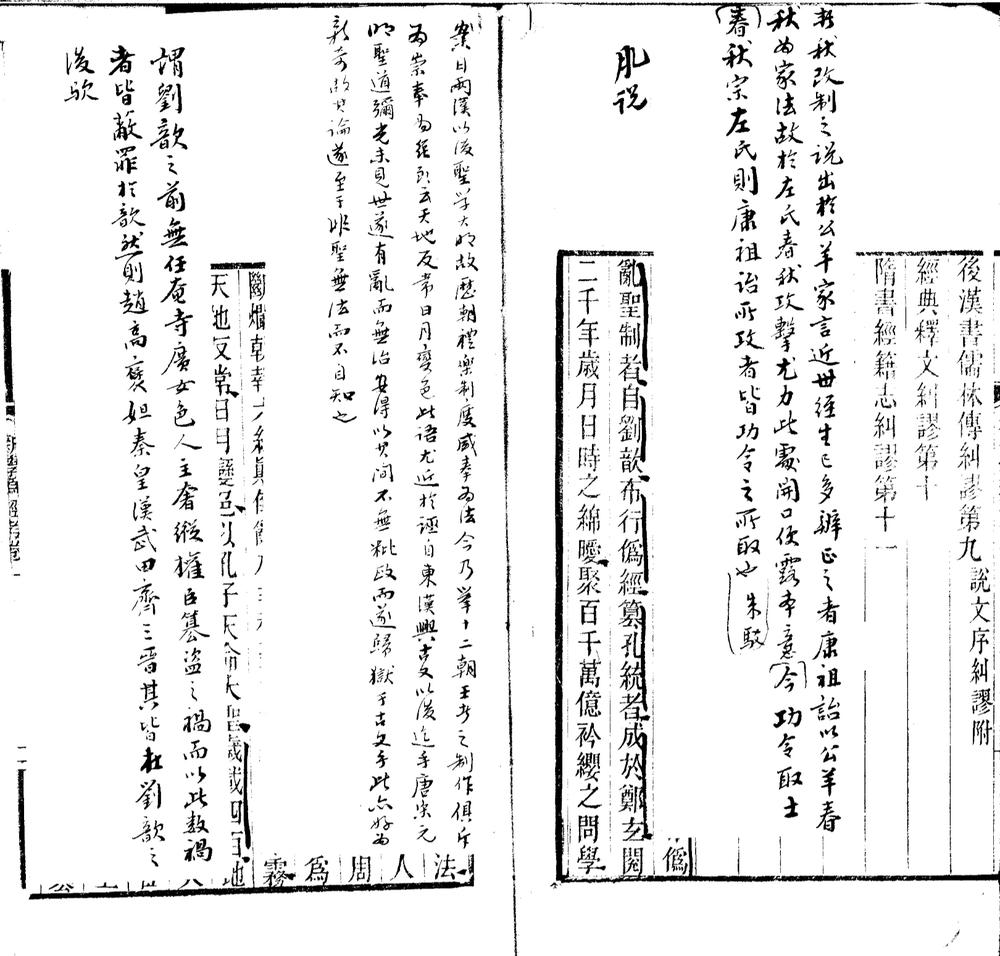 後漢書儒林傳糾謬第九 說文序糾謬附
經典釋文糾謬第十
隋書經籍志糾謬第十一
春秋改制之說出於公羊家言近世經生已多辨正之者康祖詒以公羊春
秋為家法故於左氏春秋攻擊尤力此處開口便露本意(今功令取士
(春秋宗左氏則康祖詒所攻者皆功令之所取也 朱駁
肊說
偽
亂聖制者自劉歆布行偽經篡孔統者成於鄭玄閱
二千年歲月日時之綿曖聚百千萬億衿纓之問學
案曰兩漢以後聖學大明故歷朝禮樂制度咸奉為法今乃舉十二朝王者之制作俱斥
為崇奉偽經至云天地反常日月變色此語尤近於誣自東漢興以後迄乎唐宋元
明聖道彌光未見世遂有亂而無治安得以其間不無秕政而遂歸獄于古文乎此亦好為
新奇故其論遂至于非聖無法而不自知也
法
人
周
為
霧
天地反常日月變色以孔子天命大聖歲載四百地
謂劉歆之前無任奄寺廣女色人主奢縱權臣篡盜之禍而以此數禍
者皆蔽罪於歆然則趙高褒妲秦皇漢武田齊三晉其皆在劉歆之
後歟